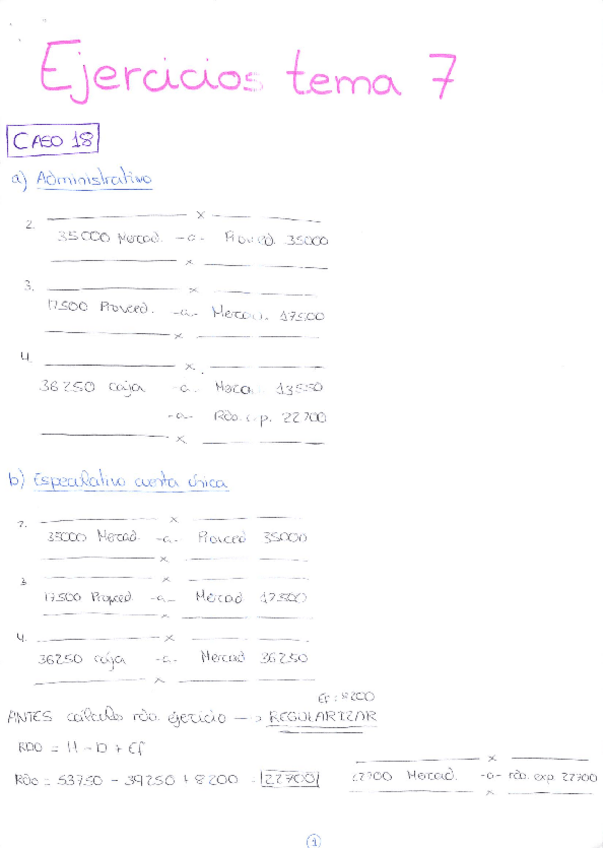 Ejercicios tema 7
CASO 18
a) Administrativo
2.
35000 Mercad. -a- Proved. 35000
3.
17500 Proveed. -a- Mercad. 17500
4.
36250 caja -a- Merca. 13550
-a- Rdo. c.p. 22700
b) Especulativo cuenta única
2.
35000 Mercad. -a- Proveed 35000
3
17500 Proveed. -a- Mercad 17500
4.
36250 caja -a- Mercad 36250
Ef: 8200
ANTES cálculo rdo. ejercicio → REGULARIZAR
RDO = H - D + Ef
Rdo = 53750 - 39250 + 8200 = 22700
22700 Mercad. -a- rdo. exp. 22700
1